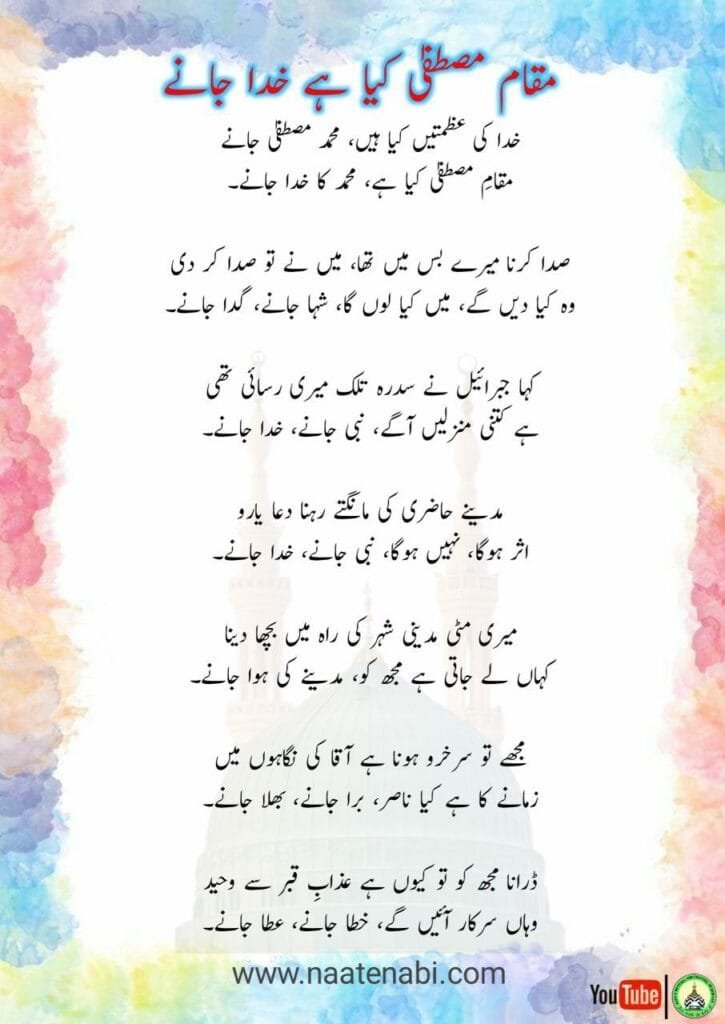 مقام مصطفیٰ کیا ہے خدا جانے
خدا کی عظمتیں کیا ہیں، محمد مصطفیٰ جانے
مقامِ مصطفیٰ کیا ہے، محمد کا خدا جانے۔
صدا کرنا میرے بس میں تھا، میں نے تو صدا کر دی
وہ کیا دیں گے، میں کیا لوں گا، شہا جانے، گدا جانے۔
کہا جبرائیل نے سدرہ تلک میری رسائی تھی
ہے کتنی منزلیں آگے، نبی جانے، خدا جانے۔
مدینے حاضری کی مانگتے رہنا دعا یارو
اثر ہوگا، نہیں ہوگا، نبی جانے، خدا جانے۔
میری مٹی مدینی شہر کی راہ میں بچھا دینا
کہاں لے جاتی ہے مجھ کو، مدینے کی ہوا جانے۔
مجھے تو سرخرو ہونا ہے آقا کی نگاہوں میں
زمانے کا ہے کیا ناصر، برا جانے، بھلا جانے۔
ڈرانا مجھ کو تو کیوں ہے عذابِ قبر سے وحید
وہاں سرکار آئیں گے، خطا جانے، عطا جانے۔
www.naatenabi.com
YouTube